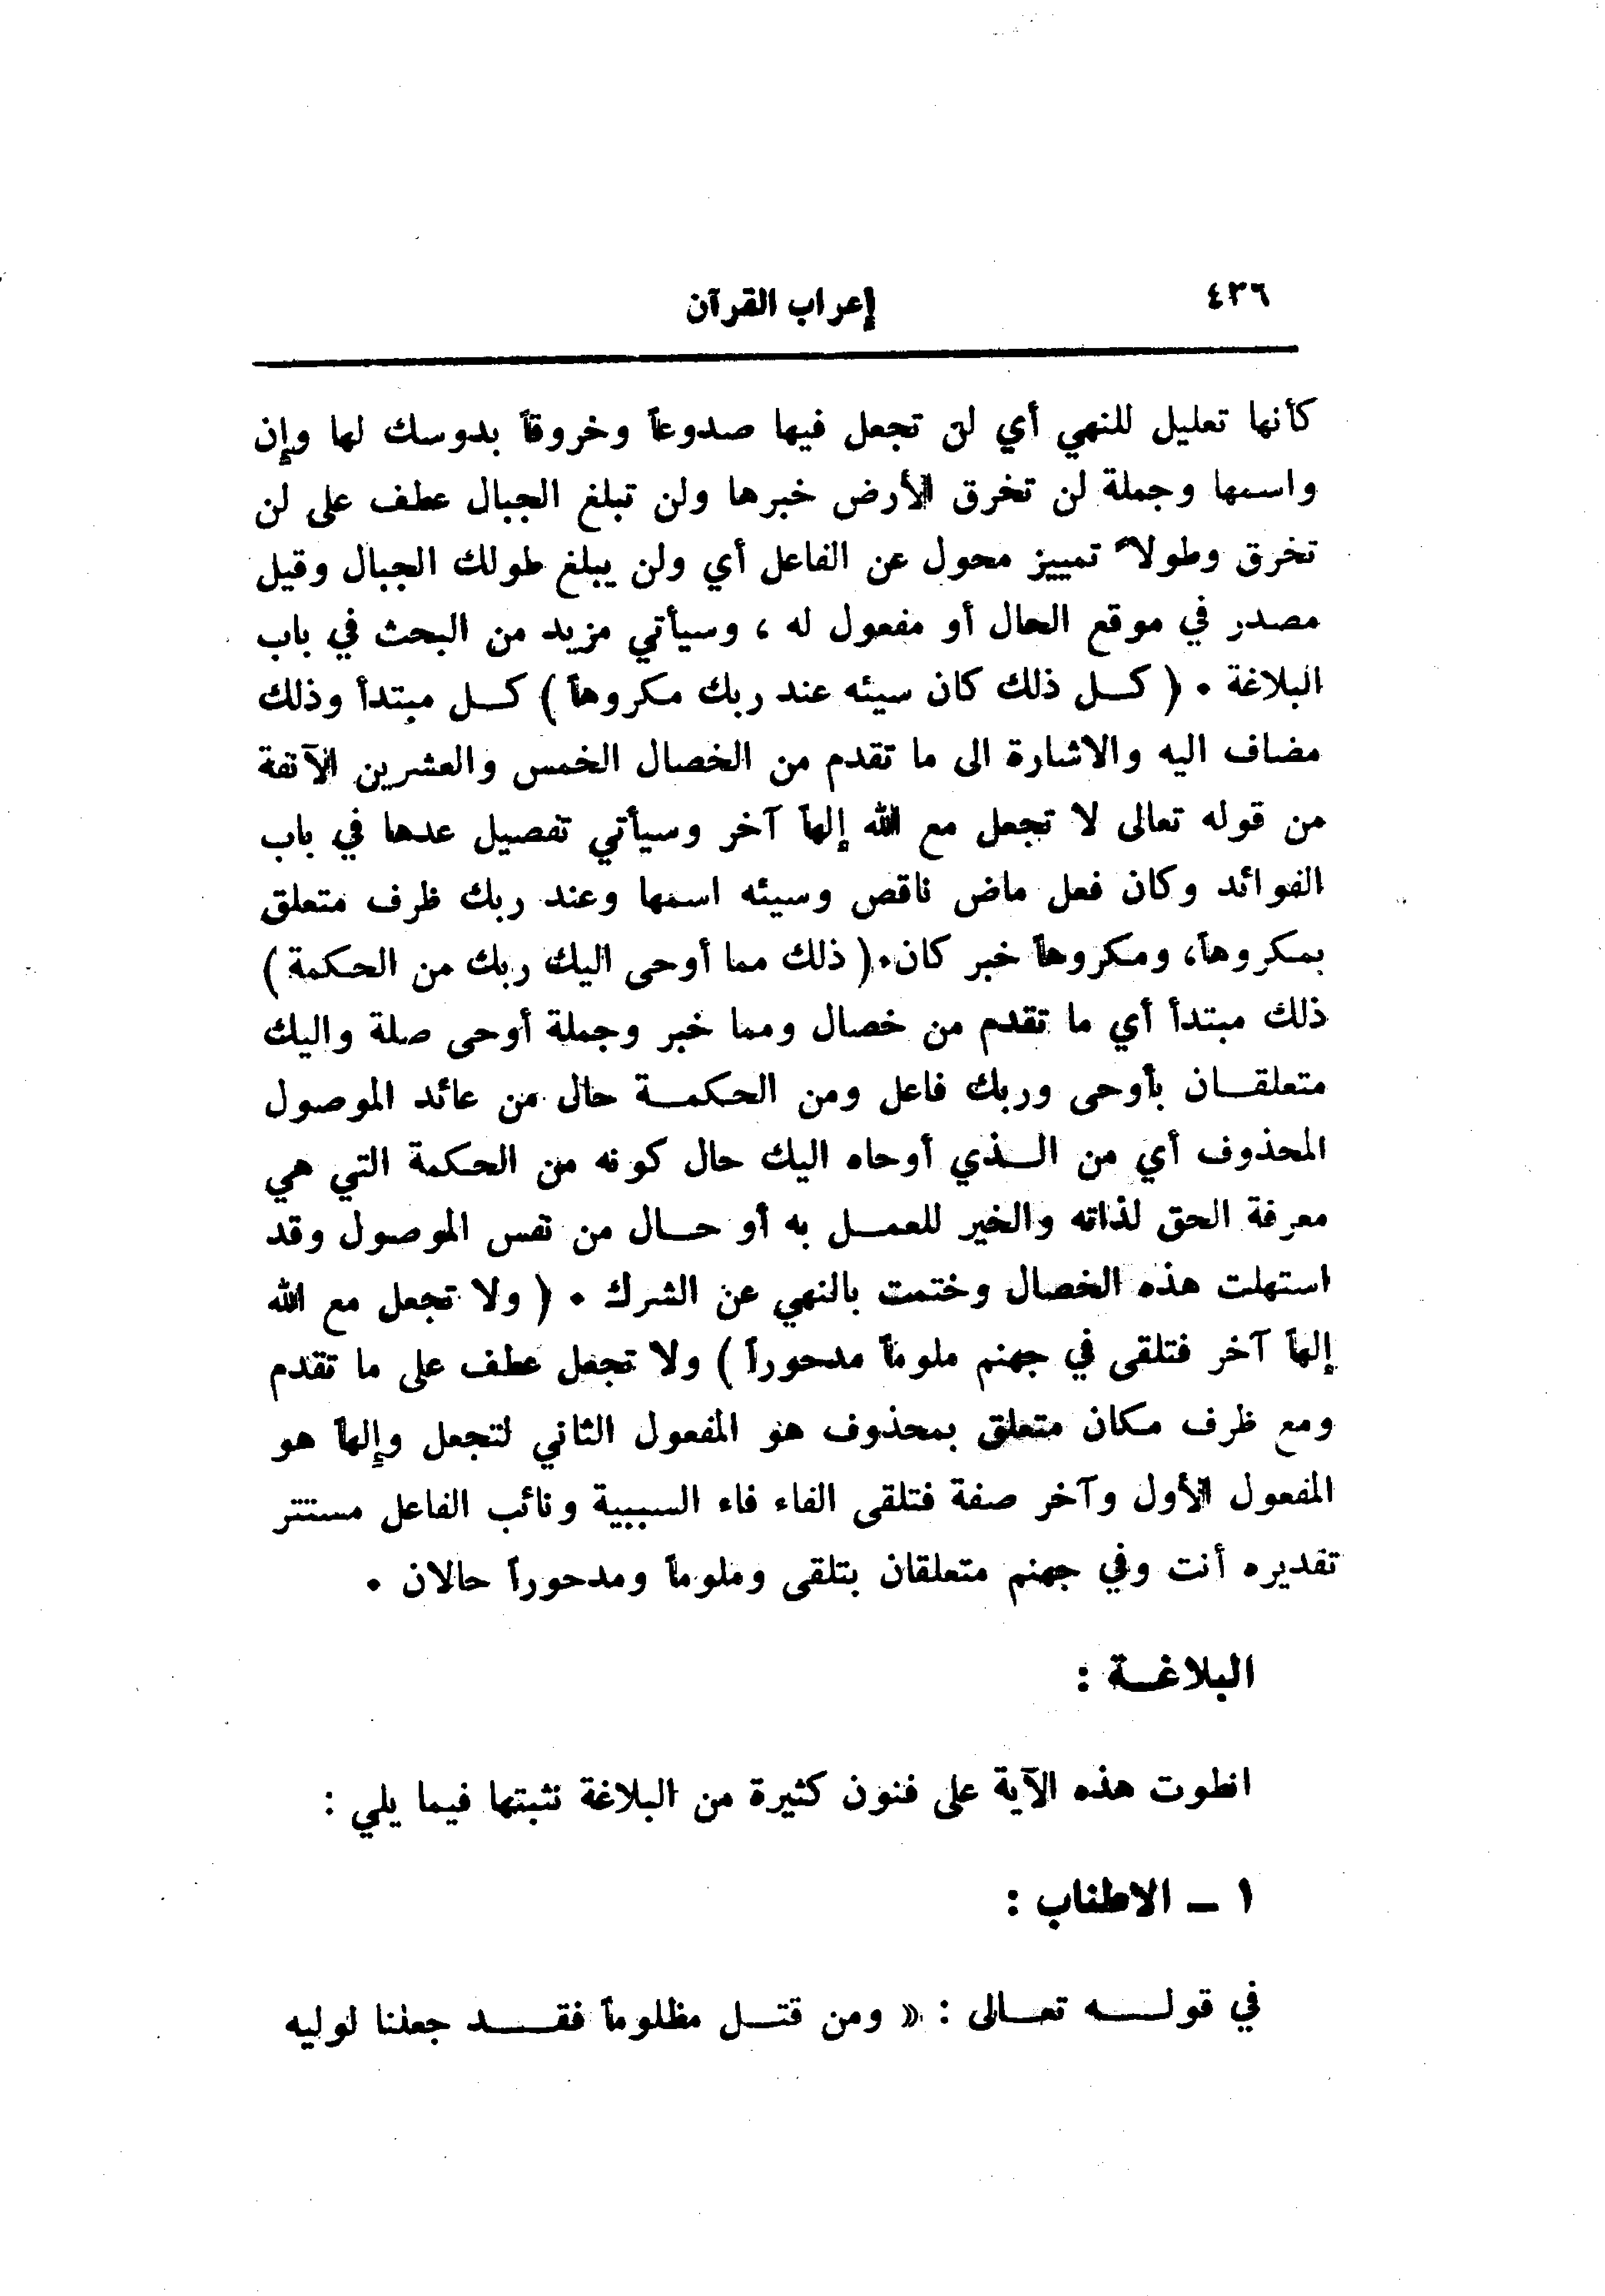 ٤٣٦
إعراب القرآن
كأنها تعليل للنهي أي لن تجعل فيها صدوعاً وخروقاً بدوسك لها وإن
واسمها وجملة لن تخرق الأرض خبرها ولن تبلغ الجبال عطف على لن
تخرق وطولاً تمييز محول عن الفاعل أي ولن يبلغ طولك الجبال وقيل
مصدر في موقع الحال أو مفعول له ، وسيأتي مزيد من البحث في باب
البلاغة . ( كـل ذلك كان سيئه عند ربك مكروهاً ) كـل مبتدأ وذلك
مضاف اليه والاشارة الى ما تقدم من الخصال الخمس والعشرين الآنفة
من قوله تعالى لا تجعل مع الله إلهاً آخر وسيأتي تفصيل عدها في باب
الفوائد وكان فعل ماض ناقص وسيئه اسمها وعند ربك ظرف متعلق
بمكروهاً، ومكروهاً خبر كان.( ذلك مما أوحى اليك ربك من الحكمة )
ذلك مبتدأ أي ما تقدم من خصال ومما خبر وجملة أوحى صلة واليك
متعلقـان بأوحى وربك فاعل ومن الحكمـة حال من عائد الموصول
المحذوف أي من الـذي أوحاه اليك حال كونه من الحكمة التي هي
معرفة الحق لذاته والخير للعمـل به أو حـال من نفس الموصول وقد
استهلت هذه الخصال وختمت بالنهي عن الشرك . ( ولا تجعل مع الله
إلهاً آخر فتلقى في جهنم ملوماً مدحوراً ) ولا تجعل عطف على ما تقدم
ومع ظرف مكان متعلق بمحذوف هو المفعول الثاني لتجعل وإلهاً هو
المفعول الأول وآخر صفة فتلقى الفاء فاء السببية ونائب الفاعل مستتر
تقديره أنت وفي جهنم متعلقان بتلقى وملوماً ومدحوراً حالان .
البلاغـة :
انطوت هذه الآية على فنون كثيرة من البلاغة نثبتها فيما يلي :
١ ـ الاطناب :
في قولـه تعـالى : « ومن قتـل مظلوماً فقـد جعلنا لوليه